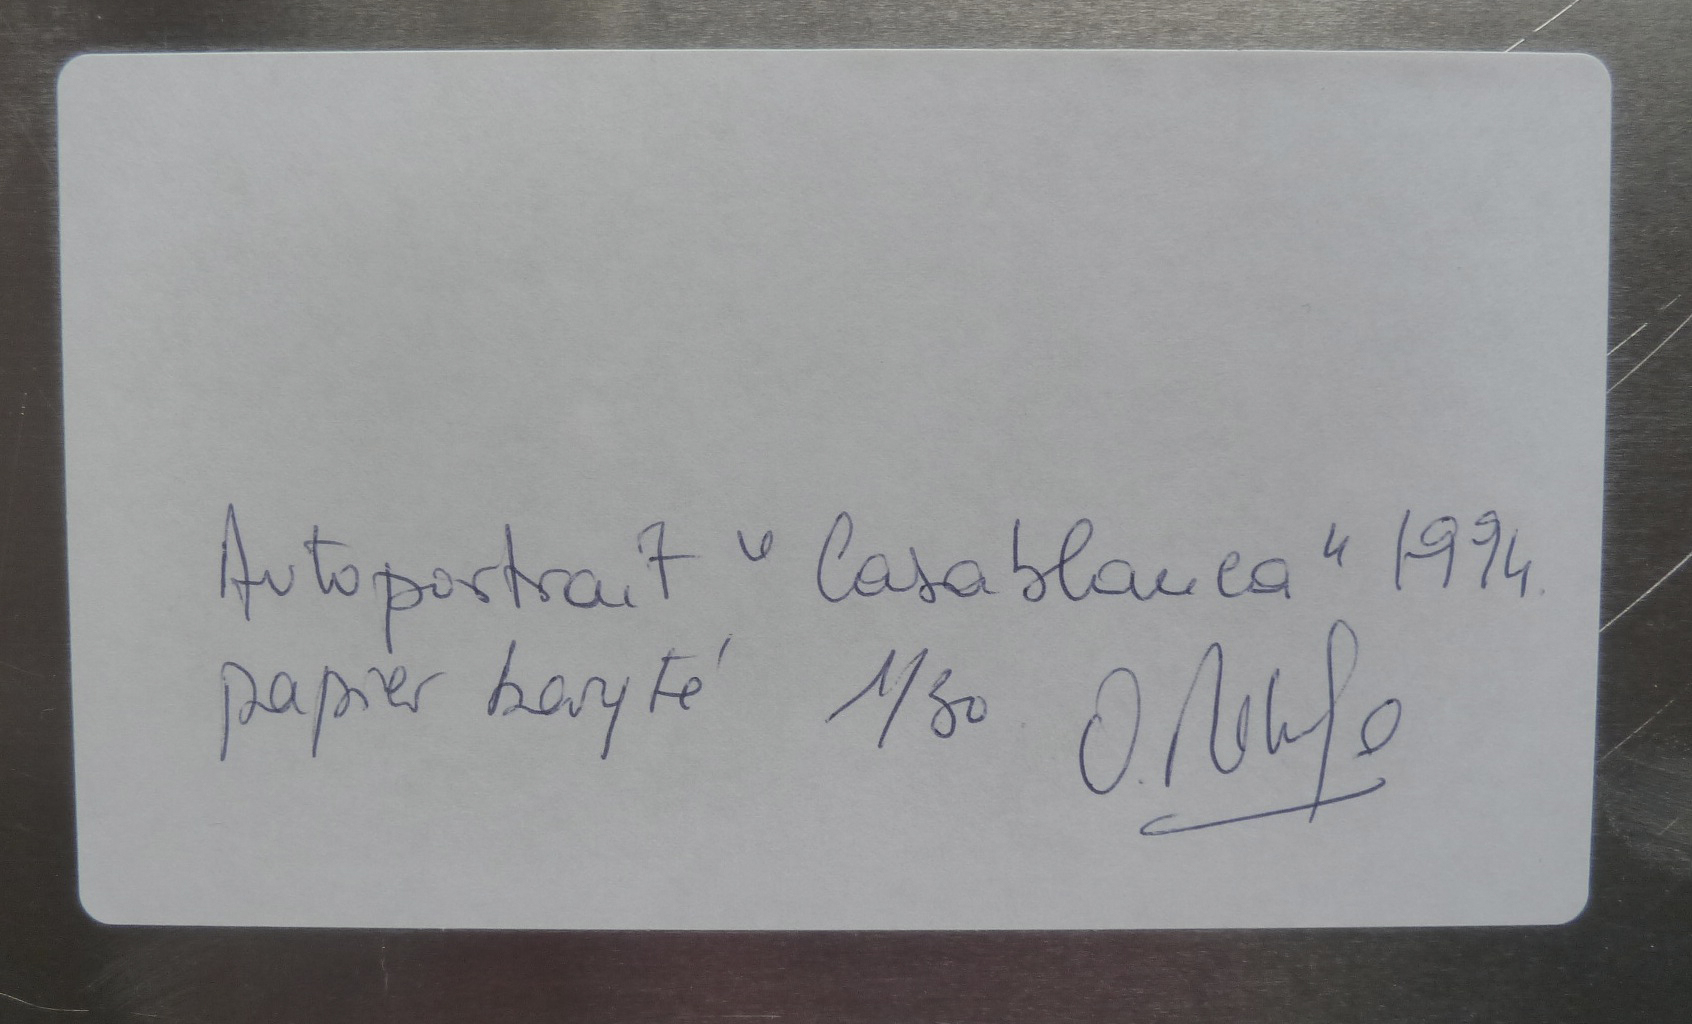 Autoportrait "Casablanca" 1994.
papier baryté 1/30 O.